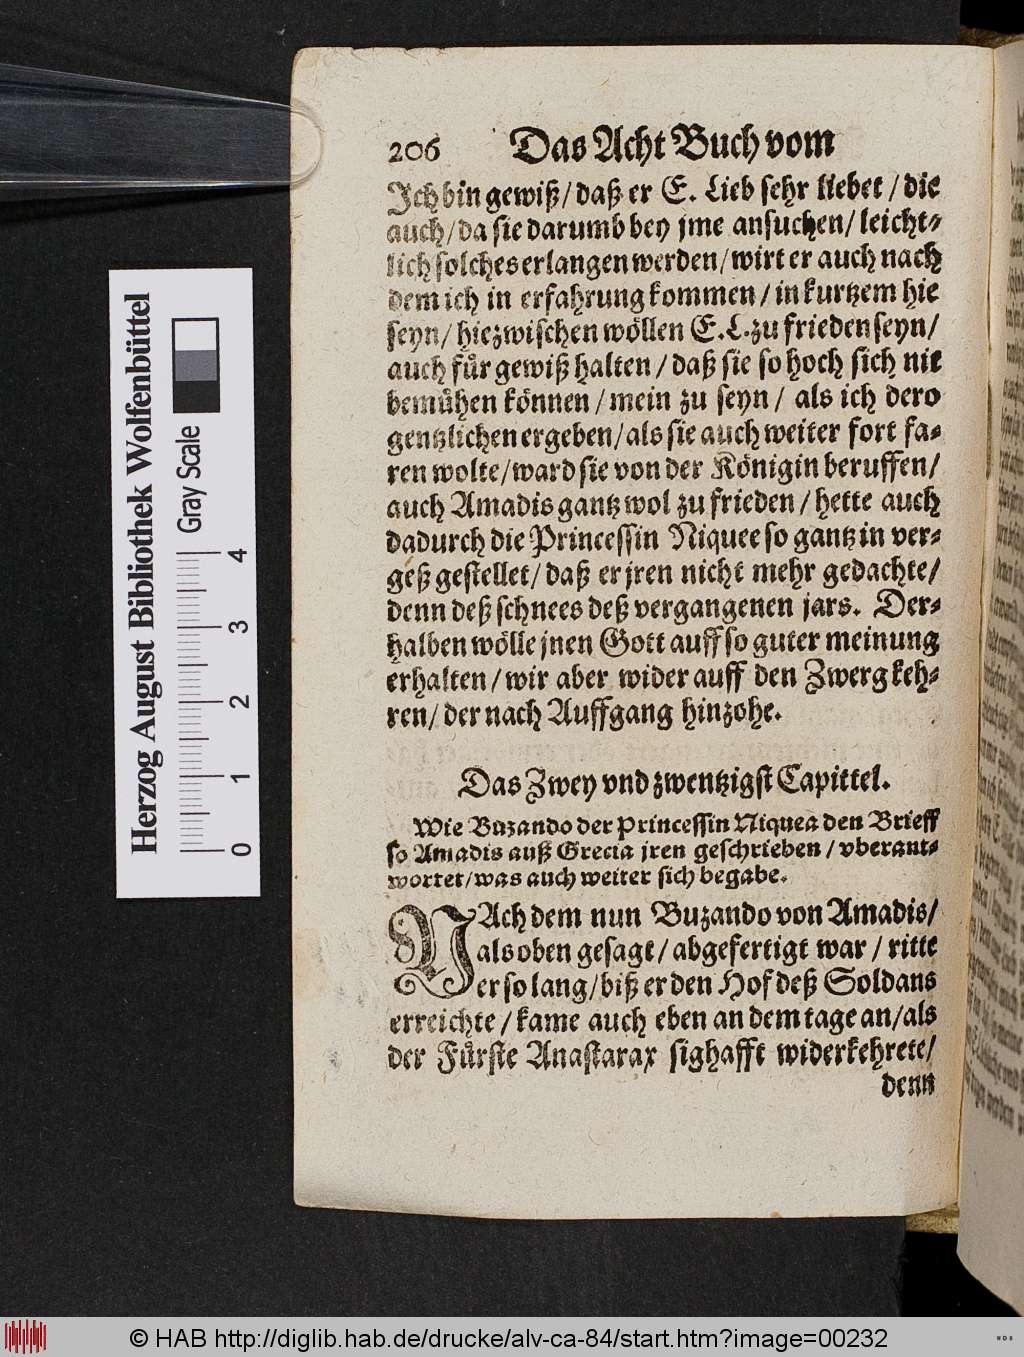 206 Das Acht Buch vom
Ich bin gewiß / daß er E. Lieb sehr liebet / die
auch / da sie darumb bey jme ansuchen / leicht-
lich solches erlangen werden / wirt er auch nach
dem ich in erfahrung kommen / in kurtzem hie
seyn / hiezwischen wöllen E. L. zu frieden seyn /
auch für gewiß halten / daß sie so hoch sich nit
bemühen können / mein zu seyn / als ich dero
gentzlichen ergeben / als sie auch weiter fort fa-
ren wolte / ward sie von der Königin beruffen /
auch Amadis gantz wol zu frieden / hette auch
dadurch die Princessin Niquee so gantz in ver-
geß gestellet / daß er jren nicht mehr gedachte /
denn deß schnees deß vergangenen jars. Der-
halben wölle jnen Gott auff so guter meinung
erhalten / wir aber wider auff den Zwerg keh-
ren / der nach Auffgang hinzohe.
Das Zwey vnd zwentzigst Capittel.
Wie Buzando der Princessin Niquea den Brieff
so Amadis auß Grecia jren geschrieben / vberant-
wortet / was auch weiter sich begabe.
NAch dem nun Buzando von Amadis /
als oben gesagt / abgefertigt war / ritte
er so lang / biß er den Hof deß Soldans
erreichte / kame auch eben an dem tage an / als
der Fürste Anastarax sighafft widerkehrete /
denn
Herzog August Bibliothek Wolfenbüttel
Gray Scale
0 1 2 3 4
© HAB http://diglib.hab.de/drucke/alv-ca-84/start.htm?image=00232